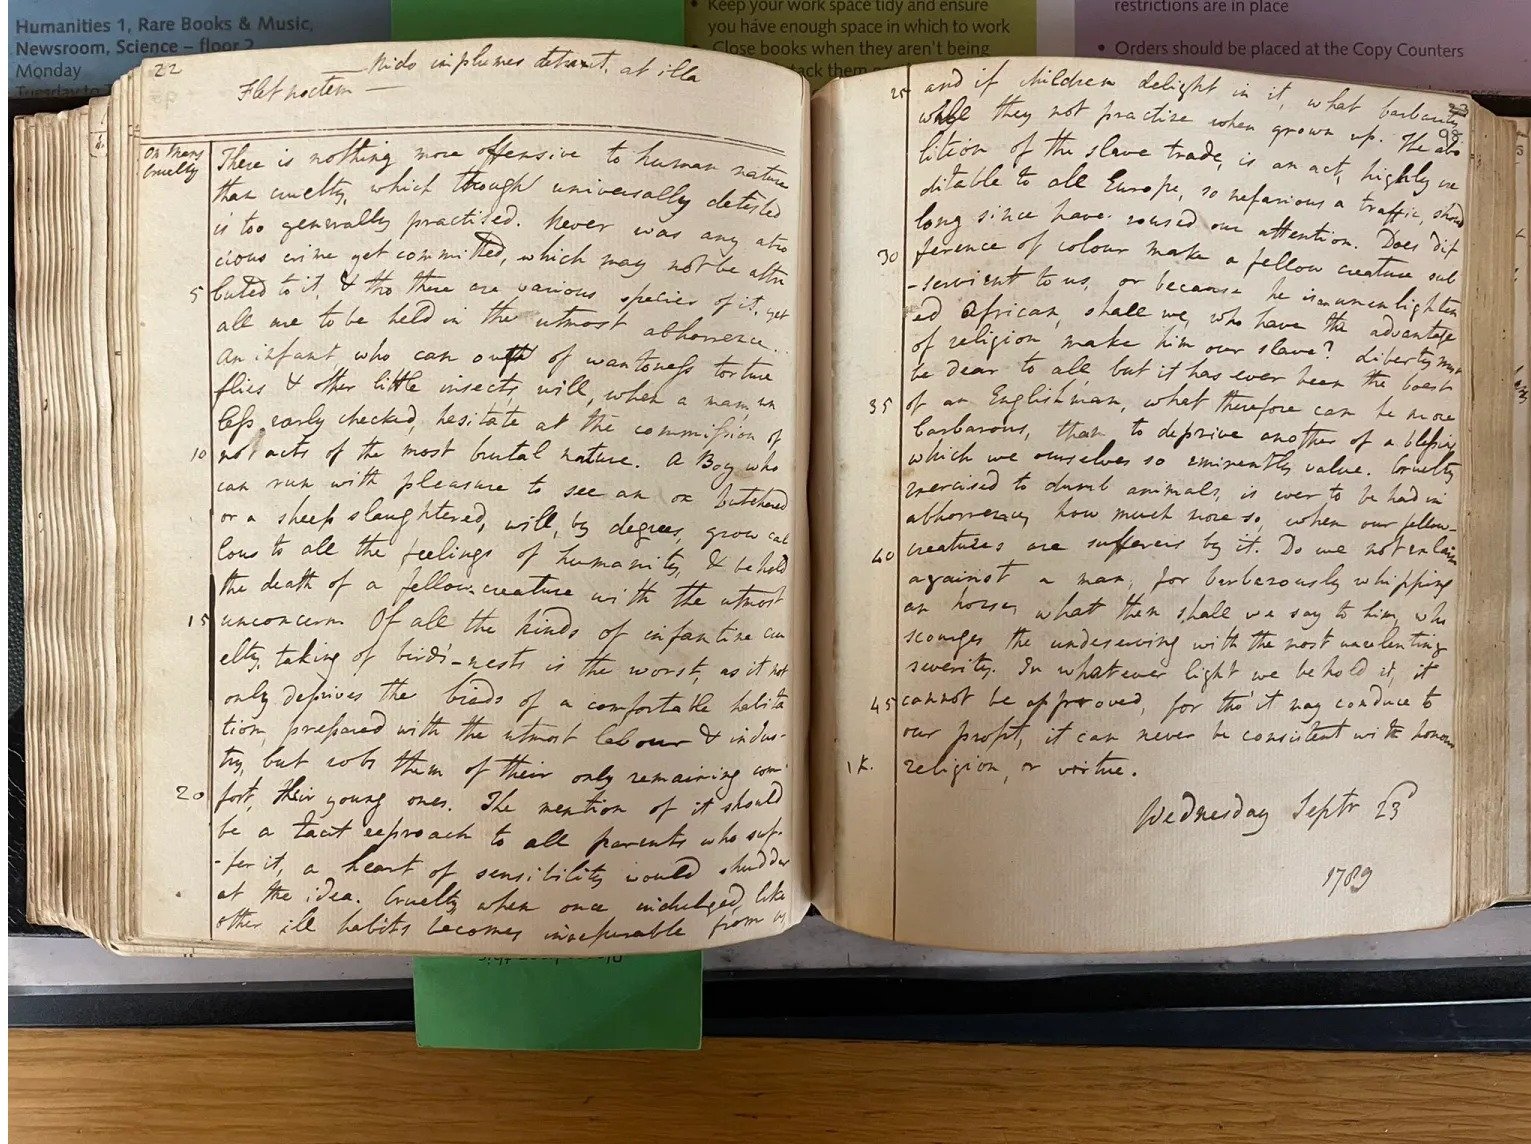 Humanities 1, Rare Books & Music,
Newsroom, Science – floor 2
Monday
Tuesday to
Keep your work space tidy and ensure
you have enough space in which to work
Close books when they aren't being
restrictions are in place
Orders should be placed at the Copy Counters
22
— Nido implumes detraxit, at illa
Flet noctem —
On Mans
Cruelty
There is nothing more offensive to human nature
than cruelty, which though universally detested
is too generally practised. Never was any atro
cious crime yet committed, which may not be attri
5 buted to it, & tho there are various species of it, yet
all are to be held in the utmost abhorrence.
An infant who can out of wantoness torture
flies & other little insects, will, when a man, un
less early checked, hesitate at the commission of
10 not acts of the most brutal nature. A Boy who
can run with pleasure to see an ox butchered
or a sheep slaughtered, will, by degrees, grow cal
lous to all the feelings of humanity, & behold
the death of a fellow-creature with the utmost
15 unconcern. Of all the kinds of infantine cru
elty, taking of birds'-nests is the worst, as it not
only deprives the birds of a comfortable habita
tion, prepared with the utmost labour & indus-
try, but robs them of their only remaining com-
20 fort, their young ones. The mention of it should
be a tacit reproach to all parents who suf-
-fer it, a heart of sensibility would shudder
at the idea. Cruelty, when once indulged, like
other ill habits becomes inseparable from us
23
98
25 and if children delight in it, what barbarity
will they not practise when grown up. The abo
lition of the slave trade, is an act, highly cre
ditable to all Europe, so nefarious a traffic, should
long since have roused our attention. Does dif
30 ference of colour make a fellow creature sub
-servient to us, or because he is an unenlighten
ed African, shall we, who have the advantage
of religion make him our slave? Liberty must
be dear to all but it has ever been the boast
35 of an Englishman, what therefore can be more
barbarous, than to deprive another of a blessing
which we ourselves so eminently value. Cruelty
exercised to dumb animals, is ever to be had in
abhorrence, how much more so, when our fellow-
40 creatures are sufferers by it. Do we not exlaim
against a man, for barbarously whipping
an horse, what then shall we say to him, who
scourges the undeserving with the most unrelenting
severity. In whatever light we behold it, it
45 cannot be approved, for tho' it may conduce to
our profit, it can never be consistent with honour
1K. religion, or virtue.
Wednesday Septr 23
1789